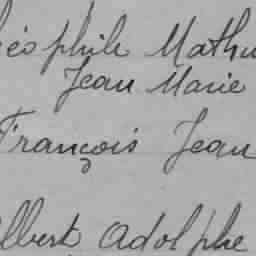 éophile Mathu
Jean Marie
François Jean
Albert Adolphe